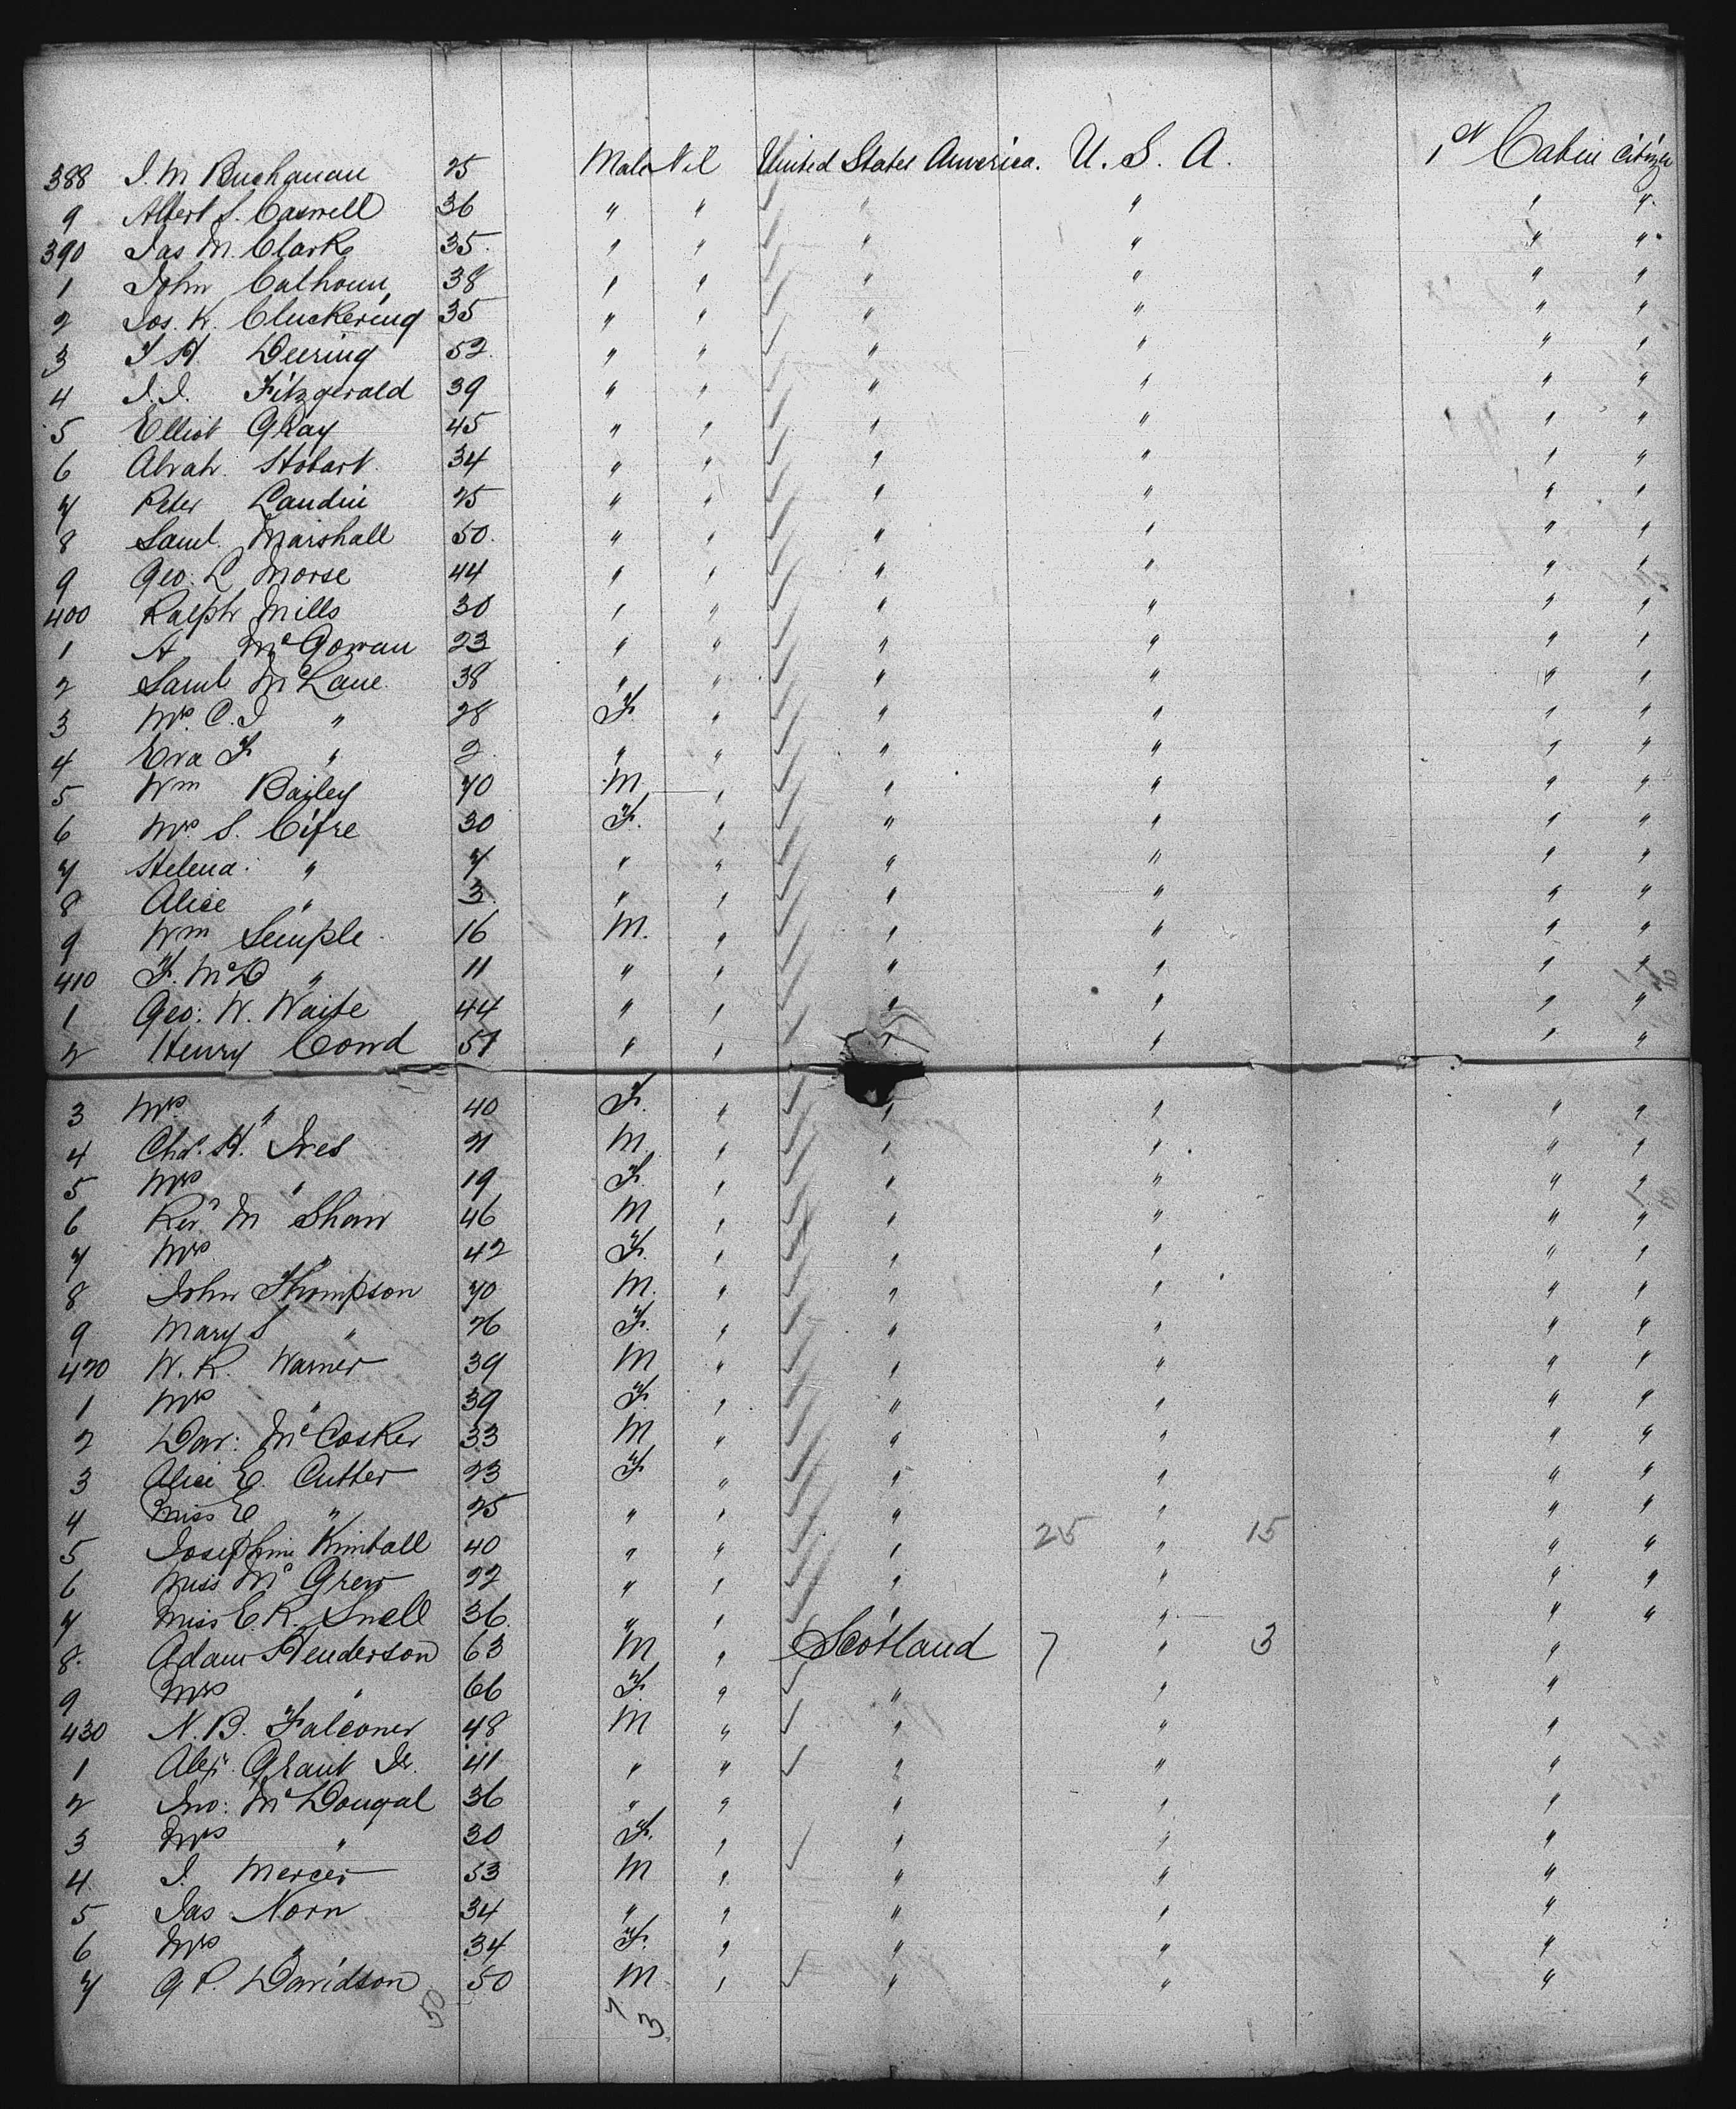 388 J. M Buchanan 25 Male Nil United States America. U. S. A. 1st Cabin Citizen
9 Albert S. Caswell 36 " " " " " "
390 Jas M. Clark 35. " " " " " "
1 John Calhoun 38 " " " " " "
2 Jos. K. Cluckering 35 " " " " " "
3 J H. Deering 52. " " " " " "
4 J. J. Fitzgerald 39 " " " " " "
5 Elliot Gray 45 " " " " " "
6 Abrah. Hobart 34 " " " " " "
7 Peter Landin 25 " " " " " "
8 Saml. Marshall 50. " " " " " "
9 Geo. L Morse 44 " " " " " "
400 Ralph Mills 30 " " " " " "
1 A McGowan 23 " " " " " "
2 Saml McLane 38 " " " " " "
3 Mrs C. J " 28 F. " " " " "
4 Eva F " 2 " " " " " "
5 Wm Bailey 70 M " " " " "
6 Mrs S. Cifre 30 F. " " " " "
7 Helena " 7 " " " " " "
8 Alice " 3 " " " " " "
9 Wm Semple 16 M. " " " " "
410 F. McD " 11 " " " " " "
1 Geo: W. Waite 44 " " " " " "
2 Henry Cowd 51 " " " " "
3 Mrs " 40 F. " " " " "
4 Chas. H. Ives 21 M " " " " "
5 Mrs " 19 F. " " " " "
6 Revd M Shaw 46 M " " " " "
7 Mrs " 42 F. " " " " "
8 John Thompson 70 M. " " " " "
9 Mary S " 26 F. " " " " "
420 W. R. Warner 39 M " " " " "
1 Mrs " 39 F. " " " " "
2 Dav: McCosker 33 M " " " " "
3 Alice E. Cutter 23 F " " " " "
4 Miss E " 25 " " " " " "
5 Josephine Kimball 40 " " " 25 " 15 " "
6 Miss McGrew 22 " " " " " "
7 Miss E. R. Snell 36. " " " " " "
8. Adam Henderson 63 M " Scotland 7 " 3 "
9 Mrs " 66 F. " " " "
430 N. B. Falconer 48 M " " " "
1 Alexr. Grant Jr. 41 " " " " "
2 Jno: McDougal 36 " " " " "
3 Mrs " 30 F. " " " "
4 J. Mercer 53 M " " " "
5 Jas Norn 34 " " " " "
6 Mrs " 34 F. " " " "
7 G P. Davidson 50 M " " " "
50 7 3